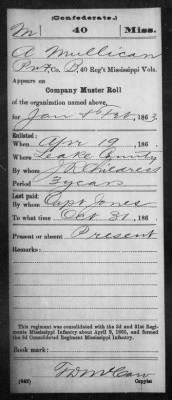 (Confederate.)
M 40 Miss.
A Mullican
Pvt, Co. B, 40 Reg't Mississippi Vols.
Appears on
Company Muster Roll
of the organization named above,
for Jan & Feb, 1863.
Enlisted:
When Apr 19, 186 .
Where Leake County
By whom J R Childress
Period 3 years
Last paid:
By whom Capt Jones
To what time Oct 31, 186 .
Present or absent Present
Remarks:
This regiment was consolidated with the 3d and 31st Regiments Mississippi Infantry about April 9, 1865, and formed the 3d Consolidated Regiment Mississippi Infantry.
Book mark:
(642) Copyist